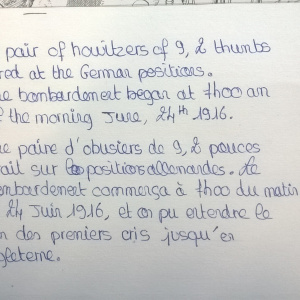 pair of howitzers of 9,2 thumbs
red at the German positions.
he bombardement began at 7h00 am
f the morning June, 24th 1916.
ne paire d'obusiers de 9,2 pouces
rait sur les positions allemandes. Le
ombardement commença à 7h00 du matin
24 Juin 1916, et on pu entendre le
n des premiers cris jusqu'en
gleterre.